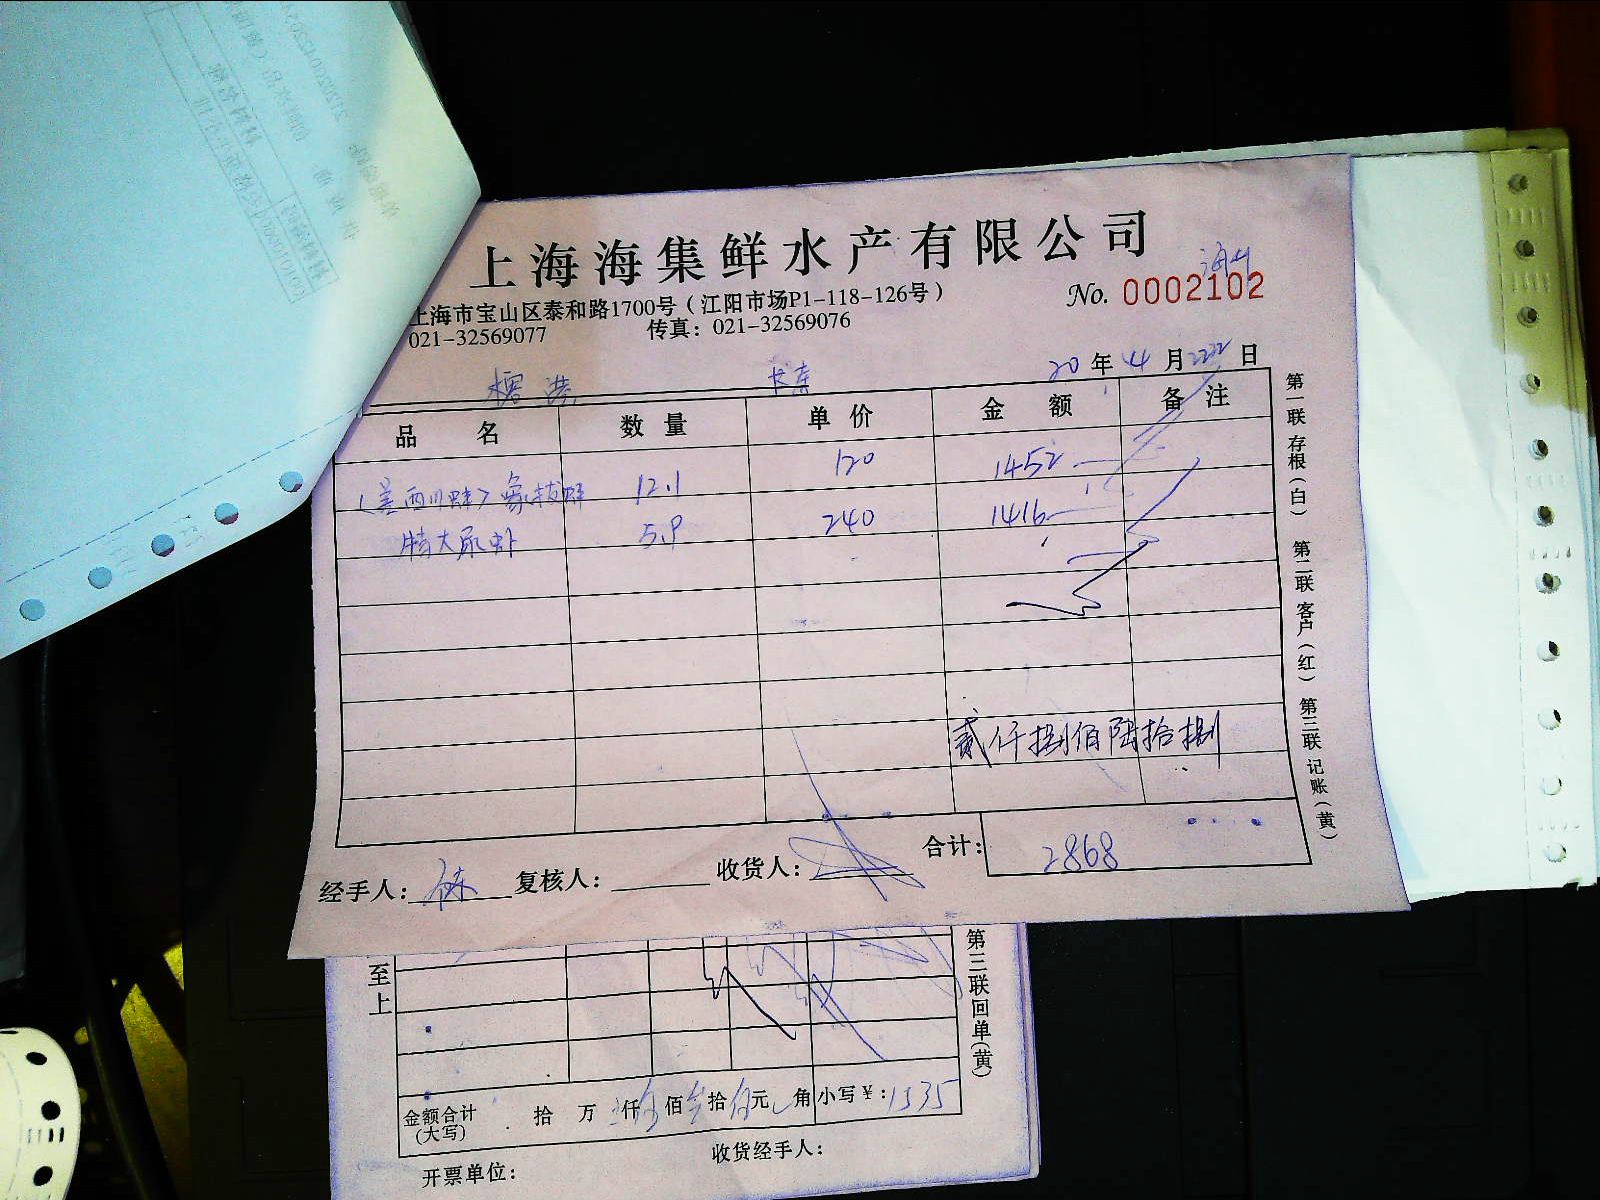 上海海集鲜水产有限公司
No. 0002102
上海市宝山区泰和路1700号（江阳市场P1-118-126号）
021-32569077 传真：021-32569076
20年4月22日
品 名 数 量 单 价 金 额 备 注
象拔蚌 12.1 120 1452
特大尿虾 5.9 240 1416
贰仟捌佰陆拾捌
合计： 2868
经手人： 复核人： 收货人：
第一联 存根（白） 第二联 客户（红） 第三联 记账（黄）
至上
第三联回单(黄)
金额合计 拾 万 仟 佰 拾 元 角 小写￥：1535
(大写)
收货经手人：
开票单位：